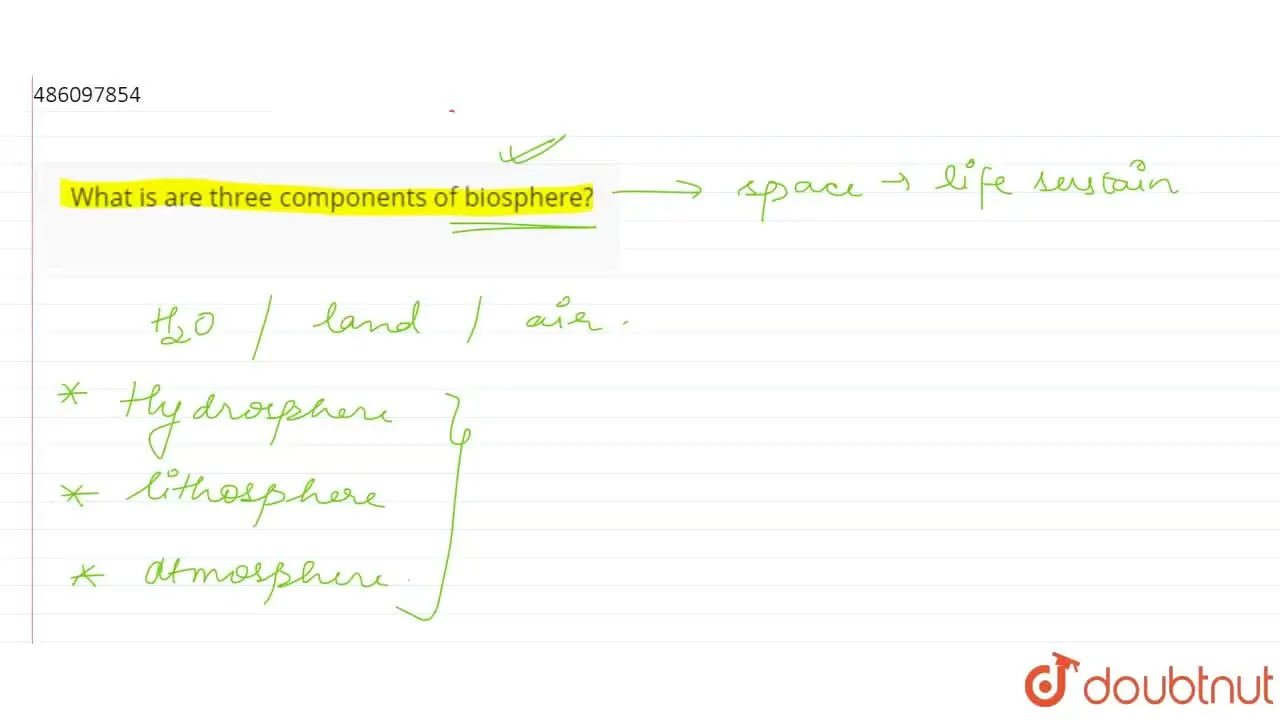 486097854
What is are three components of biosphere? → space → life sustain
H2O / land / air.
* Hydrosphere
* lithosphere
* atmosphere.
doubtnut